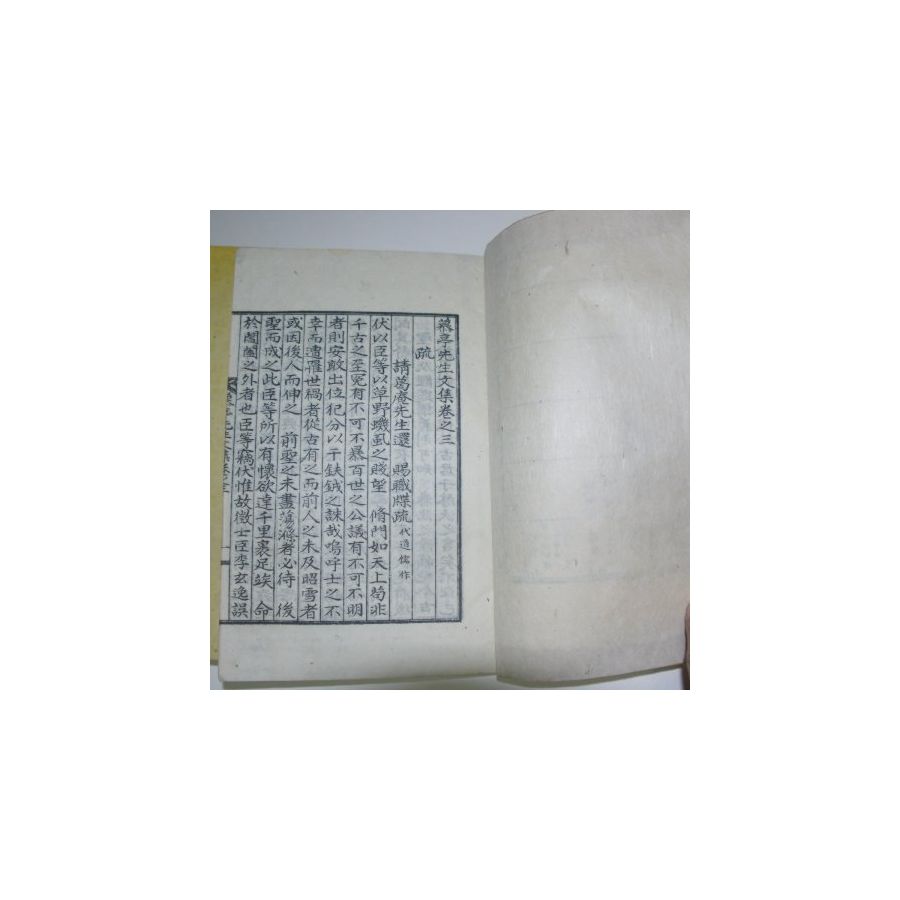 葯亭先生文集卷之三
疏
請葛庵先生還 賜職牒疏 代道儒作
伏以臣等以草野蟣虱之賤望 脩門如天上苟非
千古之至冤有不可不暴百世之公議有不可不明
者則安敢出位犯分以干鈇鉞之誅哉嗚呼士之不
幸而遭罹世禍者從古有之而前人之未及昭雪者
或因後人而伸之 前聖之未盡滌者必待 後
聖而成之此臣等所以有懷欲達千里裹足竢 命
於閶闔之外者也臣等竊伏惟故徵士臣李玄逸誤